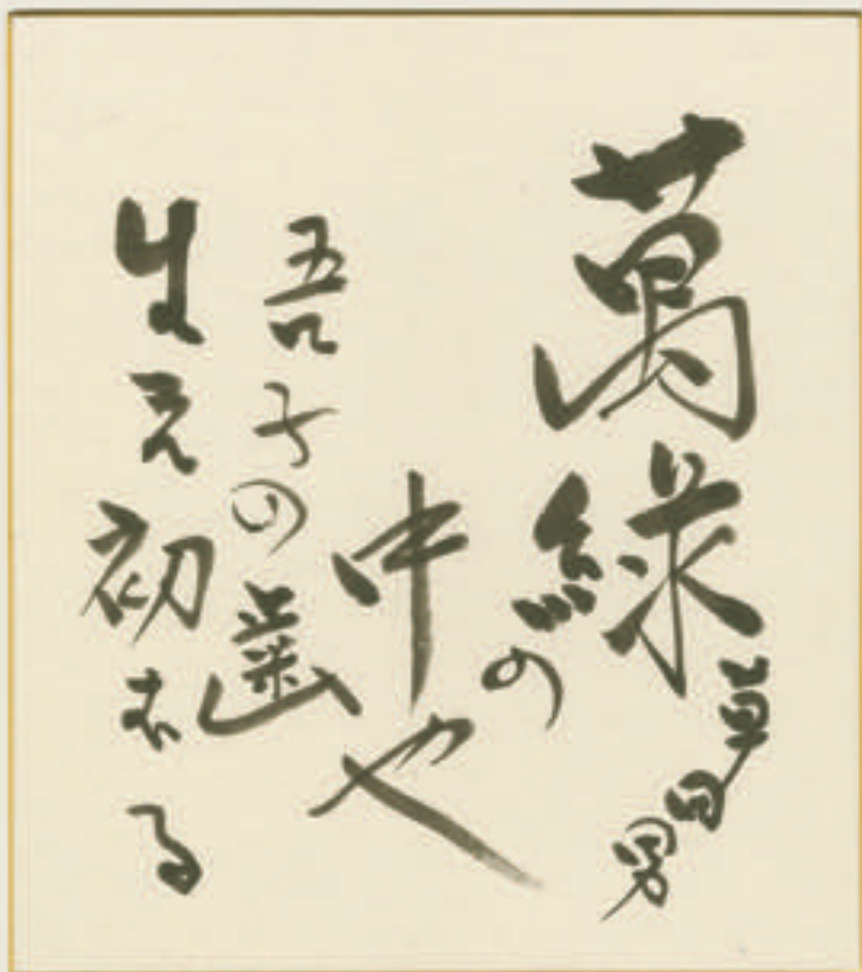 萬緑の
中や
吾子の歯
生え初むる
草田男